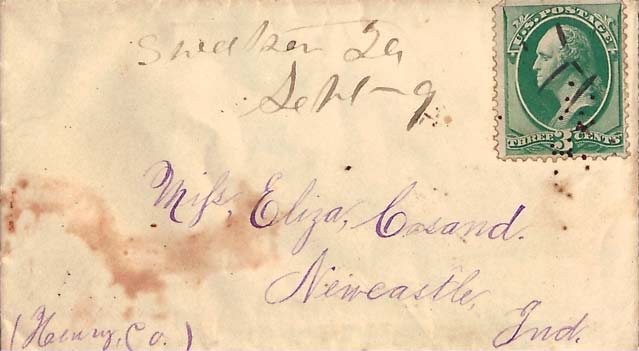 U.S. POSTAGE
THREE 3 CENTS
Sept 9
Miss, Eliza, Cosand.
Newcastle,
(Henry, Co.) Ind.